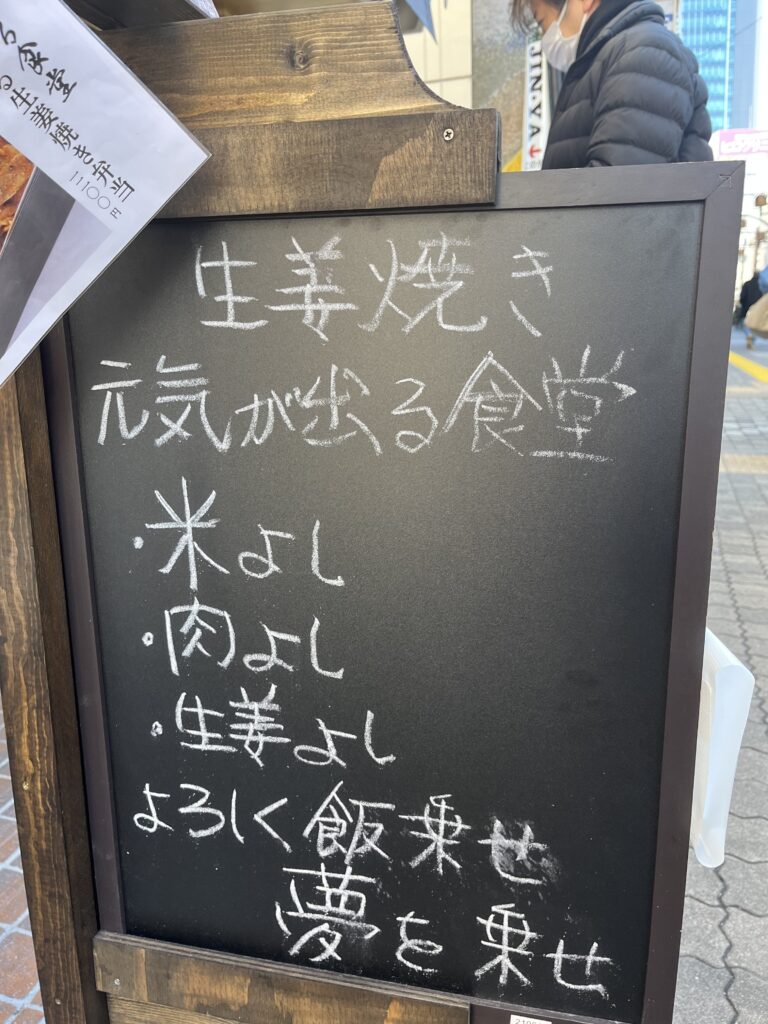 る食堂
る生姜焼き弁当
一二〇〇円
JIN・YA
生姜焼き
元気が出る食堂
・米よし
・肉よし
・生姜よし
よろしく飯乗せ
夢を乗せ